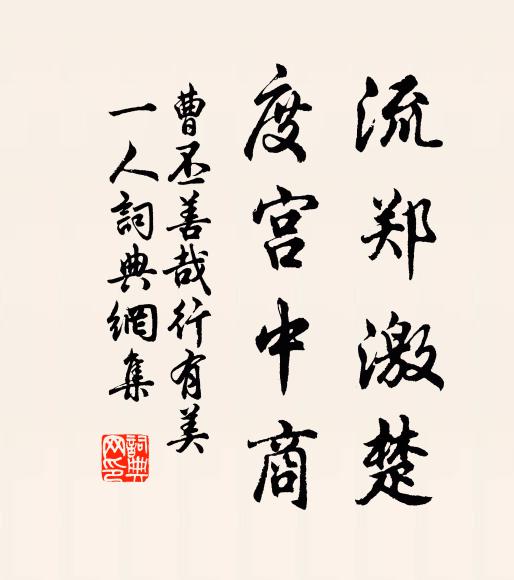 流郑激楚
度宫中商
曹丕善哉行有美
一人詞典網集
詞典网印